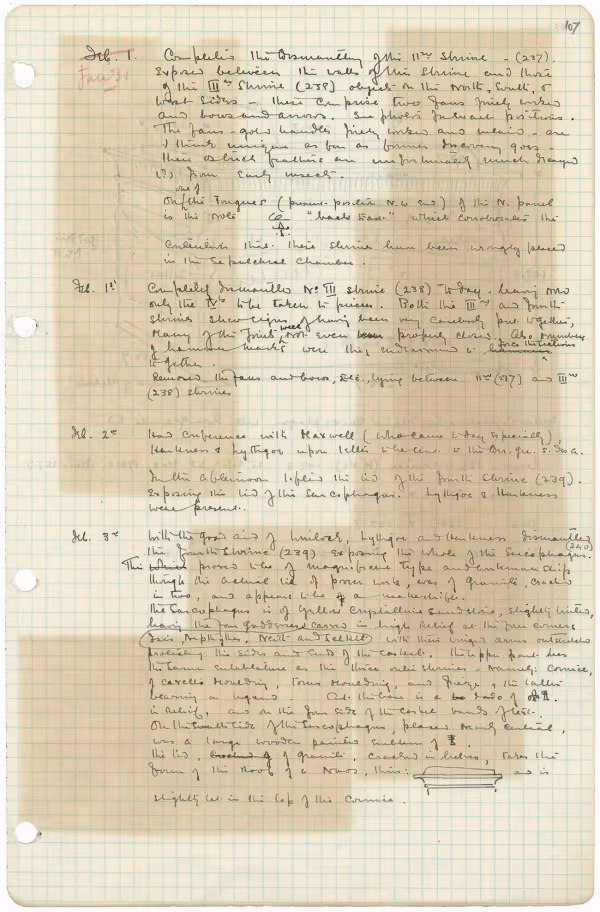 107
Feb. 1.
Jan: 31
Completed the Dismantling of the IInd Shrine - (237).
Exposed between the walls of this Shrine and those
of the IIIrd Shrine (238) objects on the North, South, &
West Sides - these comprise two fans finely worked
and bows and arrows. See photos for exact positions.
The fans - gold handles finely worked and inlaid - are
I think unique as far as former discovery goes -
their ostrich feathers are unfortunately much decayed
from early insects.
On one of the Tongues (present position N.W. end) of the N. panel
is the note "back East." which corroborates the
that these shrines have been wrongly placed
in the Sepulchral Chamber.
Feb. 1st
Completely dismantled No III shrine (238) to-day. leaving now
only the IVth to be taken to pieces. Both the IIIrd and fourth
shrines show signs of having been very carelessly put together,
Many of the joints were not even properly closed. Also numbers
of hammer marks were they endeavoured to force the sections
together.
Removed the fans and bows, etc., lying between IInd (237) and IIIrd
(238) shrines
Feb. 2nd
Had conference with Maxwell (who came to-day specially),
Harkness & Lythgoe upon letter to be sent to the Dir. Gen. S. des A.
In the afternoon lifted the lid of the fourth Shrine (239).
exposing the lid of the Sarcophagus. Lythgoe & Harkness
were present.
Feb. 3rd
With the good aid of Winlock, Lythgoe and Harkness dismantled
the fourth Shrine (239) exposing the whole of the Sarcophagus. (240)
This proved to be of magnificent type and workmanship
though the actual lid of poorer work, was of granite, cracked
in two, and appears to be a makeshift.
The Sarcophagus is of Yellow Crystalline Sandstone, slightly tinted,
having the four goddesses carved in high relief at the four corners
Isis, Nephthys, Neith and Selkit) with their winged arms outstretched
protecting the sides and ends of the casket. The upper part has
the same entablature as the three outer shrines - namely: Cornice,
Cavetto Moulding, torus moulding, and frieze, the latter
bearing a legend. At the base is a dado of
in relief, and on the four sides of the casket bands of text.
On the South side of the Sarcophagus, placed nearly central,
was a large wooden painted emblem of
The lid, of granite, cracked in halves, takes the
form of the Roof of a Naos, thus: and is
slightly let in the top of the Cornice.